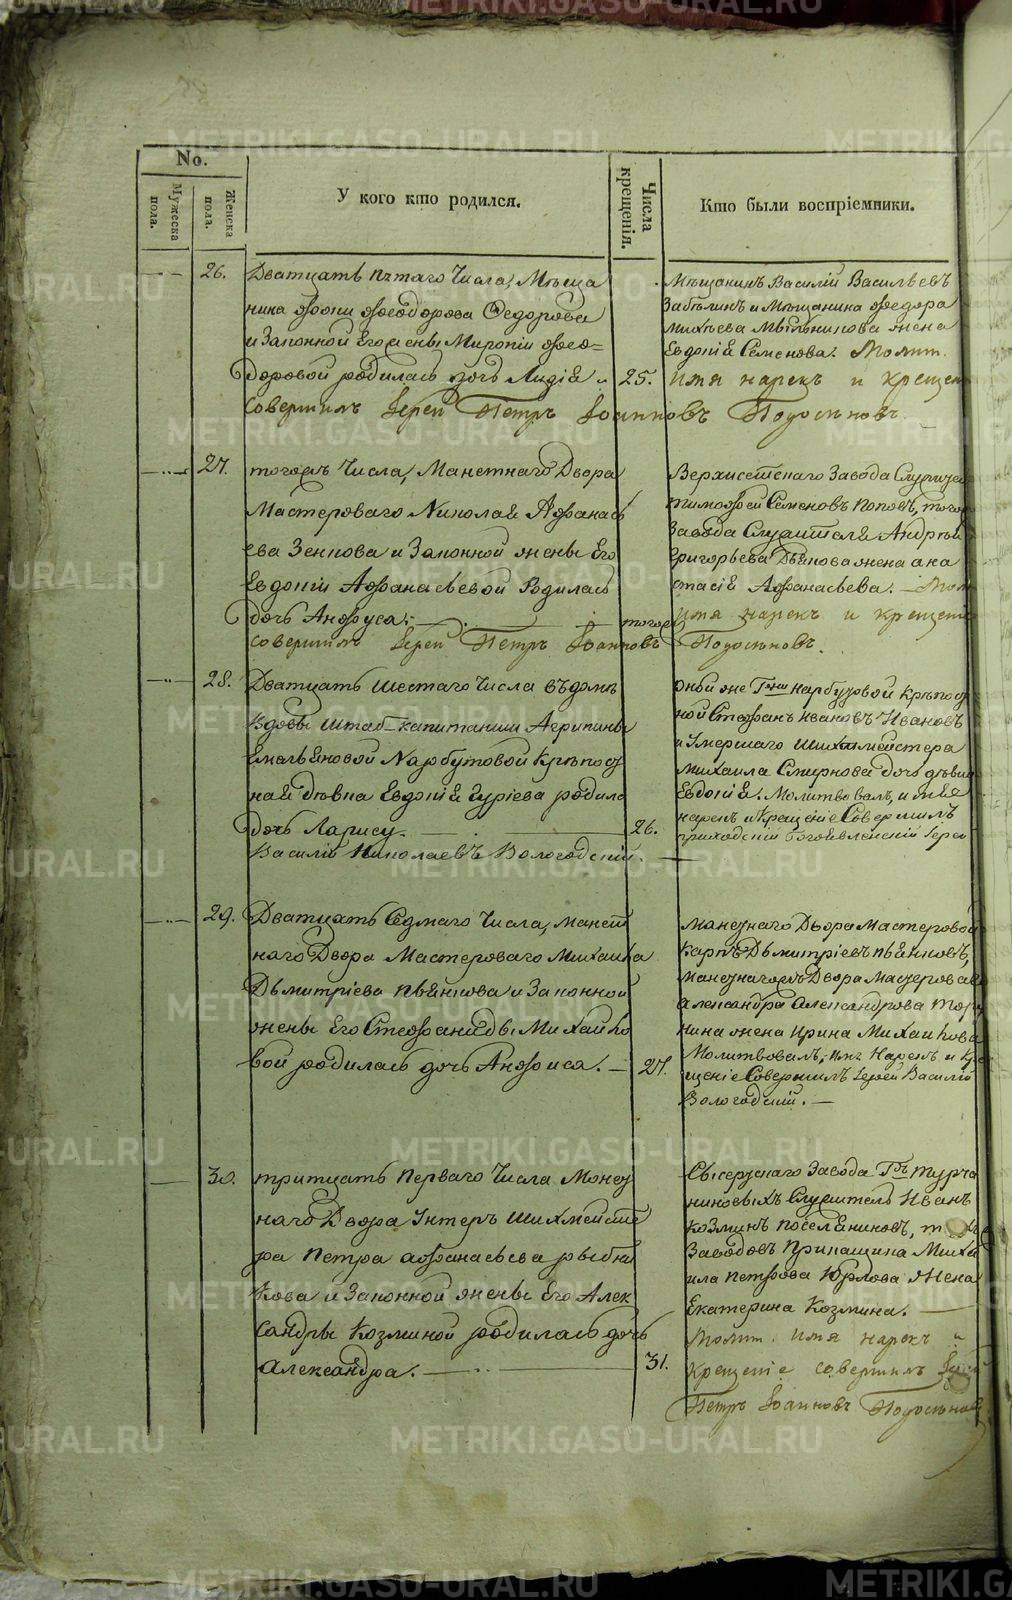 METRIKI.GASO-URAL.RU
No.
Мужеска пола.
Женска пола.
У кого кто родился.
Числа крещенія.
Кто были воспріемники.
26.
Дватцать пятаго Числа, Мѣща
нина Ѳеодорова Федорова
и Законной Его жены Миропіи Ѳео=
доровой родилась дочь Лидія
25.
Мѣщанинъ Василій Васильевъ
Забѣлинъ и Мѣщанина Ѳедора
жена
Евдокія Семенова. Молит.
имя нарекъ и крещен
совершилъ Іерей Петръ Іоанновъ Подосеновъ
27.
тогожъ Числа, Манетнаго Двора
Мастероваго Николая Аѳанась
ева Зенкова и Законной жены Его
Евдокіи Аѳанасьевой Родилась
дочь Анфуса.
тогож
Верхисетскаго Завода Служител
Тимофей Семеновъ Поповъ, того
Завода Служителя Андрея
Григорьева жена ана
стасія Аѳанасьева. — Мол
имя нарекъ и крещеніе
совершилъ Іерей Петръ Іоанновъ Подосеновъ.
28.
Дватцать шестаго Числа въ домѣ
вдовы штаб-капитанши Агрипины
Емельяновой Нарбутовой Крѣпос
ная дѣвка Евдокія Гуріева родила
дочь Ларису.
26.
оной же Гжи Нарбутовой крѣпос
ной Стефанъ Ивановъ Ивановъ
и Умершаго Шихтмейстера
Михаила Смирнова дочь дѣвица
Евдокія. Молитвовалъ, имя
нарекъ и Крещеніе Совершилъ
приходскій Богоявленскій Іерей
Василій Николаевъ Вологодскій.
29.
Дватцать Седмаго Числа, Манет
наго Двора Мастероваго Михаила
Дьмитріева пьянкова и Законной
жены Его Стефаниды Михайло
вой родилась дочь Анфиса.
27.
Манетнаго Двора Мастеровой
Карпъ Дьмитріевъ пьянковъ,
Манетнагожъ Двора Мастероваго
александра александрова
жена Ирина Михайлова
Молитвовалъ, имя Нарекъ и Кре
щеніе Совершилъ Іерей Василій
Вологодскій.
30.
тритцать Перваго Числа Монет
наго Двора Унтеръ Шихтмейсте
ра Петра аѳанасьева рыбни
кова и Законной жены Его Алек
сандры Козминой родилась дочь
Александра.
31.
Сысертскаго Завода Гдъ турча
ниновыхъ Служитель Иванъ
козминъ поселениковъ,
Заводовъ Прикащика Миха
ила петрова Юрлова Жена
Екатерина Козмина.
Молит. имя нарекъ и
Крещеніе совершилъ Іерей
Петръ Іоанновъ Подосеновъ